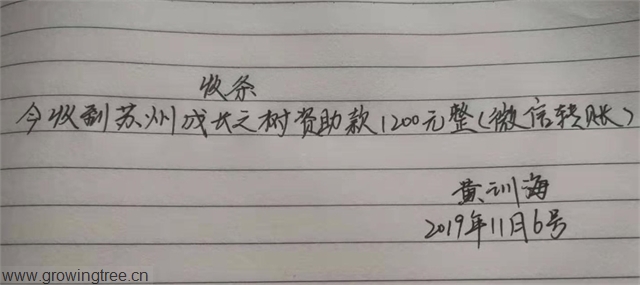 收条
今收到苏州成长之树资助款1200元整(微信转账)
黄训海
2019年11月6号
www.growingtree.cn